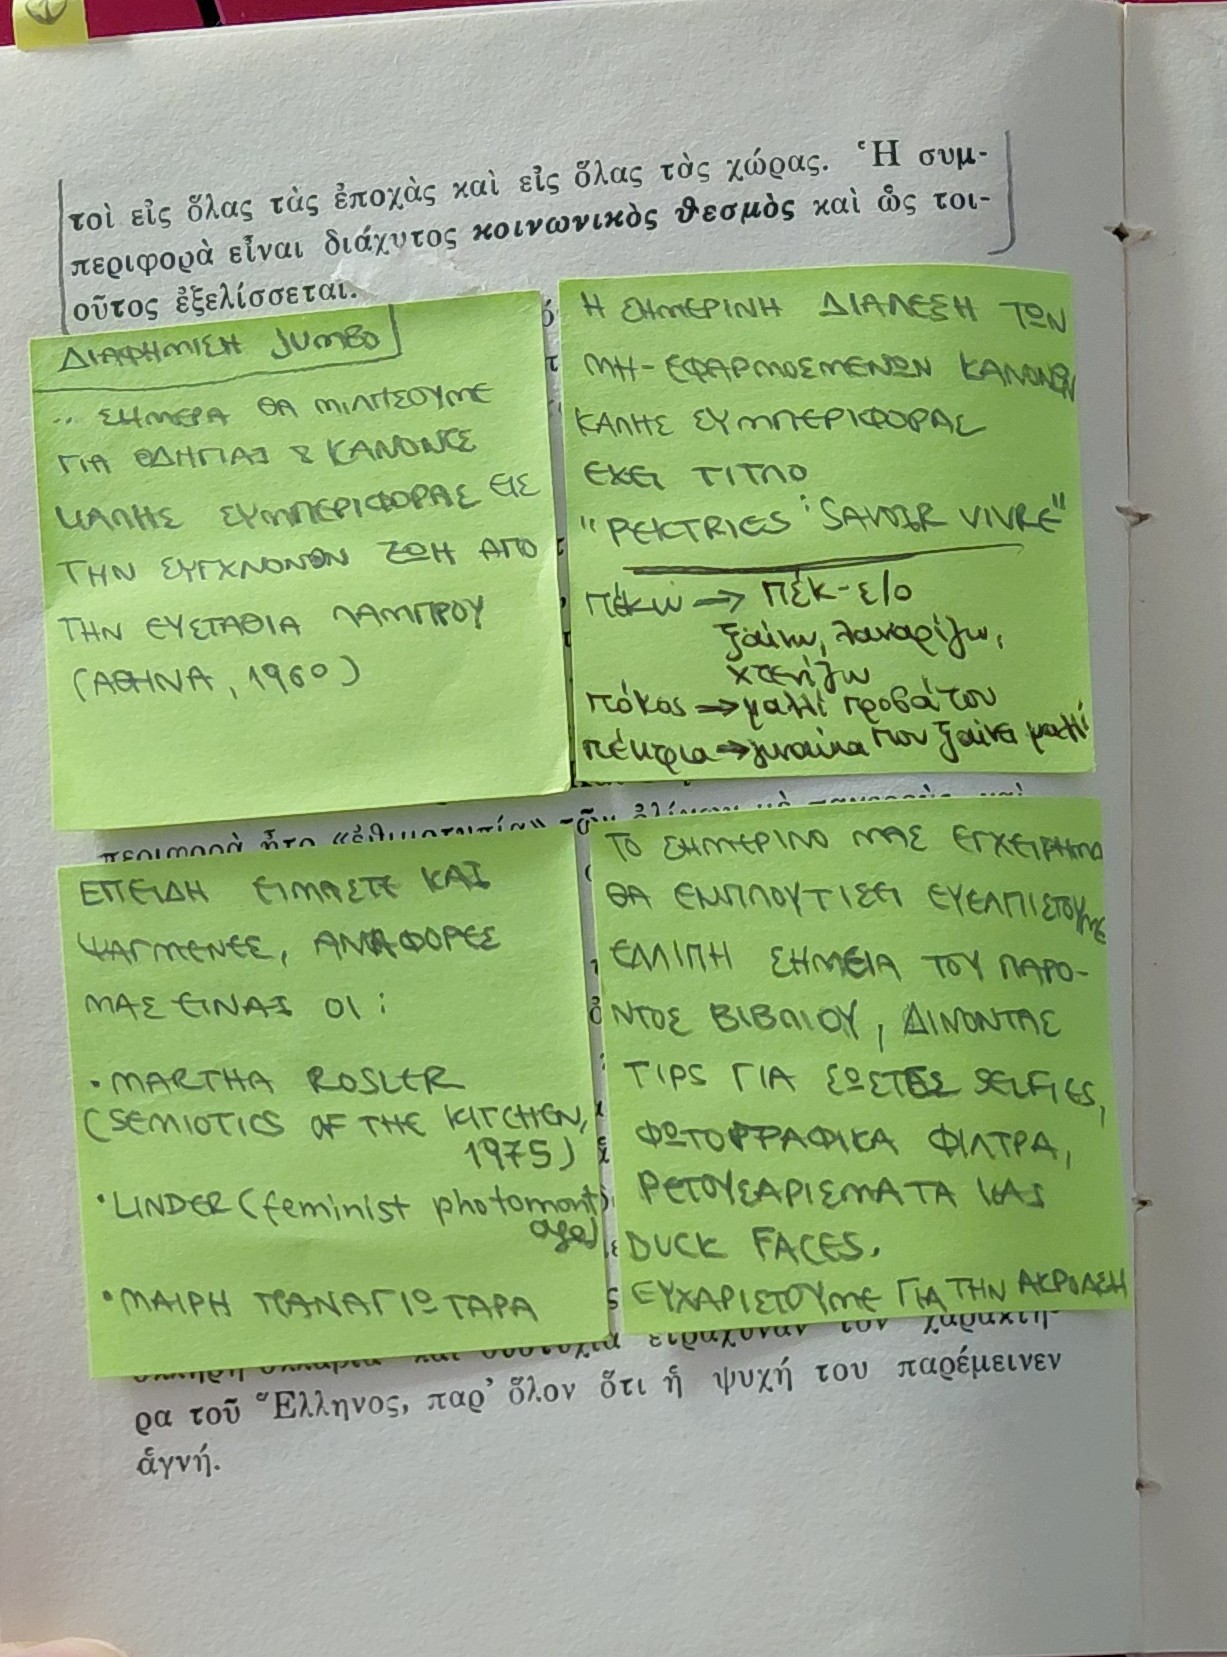 τοὶ εἰς ὅλας τὰς ἐποχὰς καὶ εἰς ὅλας τὰς χώρας. Ἡ συμ-
περιφορὰ εἶναι διάχυτος κοινωνικὸς θεσμὸς καὶ ὣς τοι-
οῦτος ἐξελίσσεται.
ΔΙΑΦΗΜΙΣΗ JUMBO
.. ΣΗΜΕΡΑ ΘΑ ΜΙΛΗΣΟΥΜΕ
ΓΙΑ ΟΔΗΓΙΑΣ & ΚΑΝΟΝΕΣ
ΚΑΛΗΣ ΣΥΜΠΕΡΙΦΟΡΑΣ ΕΙΣ
ΤΗΝ ΣΥΓΧΝΟΝΟΝ ΖΩΗ ΑΠΟ
ΤΗΝ ΕΥΣΤΑΘΙΑ ΛΑΜΠΡΟΥ
(ΑΘΗΝΑ, 1960)
Η ΣΗΜΕΡΙΝΗ ΔΙΑΛΕΞΗ ΤΩΝ
ΜΗ-ΕΦΑΡΜΟΣΜΕΝΩΝ ΚΑΝΟΝΩΝ
ΚΑΛΗΣ ΣΥΜΠΕΡΙΦΟΡΑΣ
ΕΧΕΙ ΤΙΤΛΟ
"PEKTRIES : SAVOIR VIVRE"
πέκω → πέκ-ε/ο
ξαίνω, λαναρίζω,
χτενίζω
πόκος → μαλλί προβάτου
πέκτρια → γυναίκα που ξαίνει μαλλί
περιφορὰ ἦτο «ἐθιμοτυπία» τῶν ὀλίγων
ΕΠΕΙΔΗ ΕΙΜΑΣΤΕ ΚΑΙ
ΨΑΓΜΕΝΕΣ, ΑΝΑΦΟΡΕΣ
ΜΑΣ ΕΙΝΑΙ ΟΙ :
• MARTHA ROSLER
(SEMIOTICS OF THE KITCHEN,
1975)
• LINDER (feminist photomont
age)
• ΜΑΙΡΗ ΠΑΝΑΓΙΩΤΑΡΑ
ΤΟ ΣΗΜΕΡΙΝΟ ΜΑΣ ΕΓΧΕΙΡΗΜΑ
ΘΑ ΕΜΠΛΟΥΤΙΣΕΙ ΕΥΕΛΠΙΣΤΟΥΜΕ
ΕΛΛΙΠΗ ΣΗΜΕΙΑ ΤΟΥ ΠΑΡΟ-
ΝΤΟΣ ΒΙΒΛΙΟΥ, ΔΙΝΟΝΤΑΣ
TIPS ΓΙΑ ΣΩΣΤΕΣ SELFIES,
ΦΩΤΟΓΡΑΦΙΚΑ ΦΙΛΤΡΑ,
ΡΕΤΟΥΣΑΡΙΣΜΑΤΑ ΚΑΙ
DUCK FACES.
ΕΥΧΑΡΙΣΤΟΥΜΕ ΓΙΑ ΤΗΝ ΑΚΡΟΑΣΗ
ρα τοῦ Ἕλληνος, παρ' ὅλον ὅτι ἡ ψυχή του παρέμεινεν
ἁγνή.